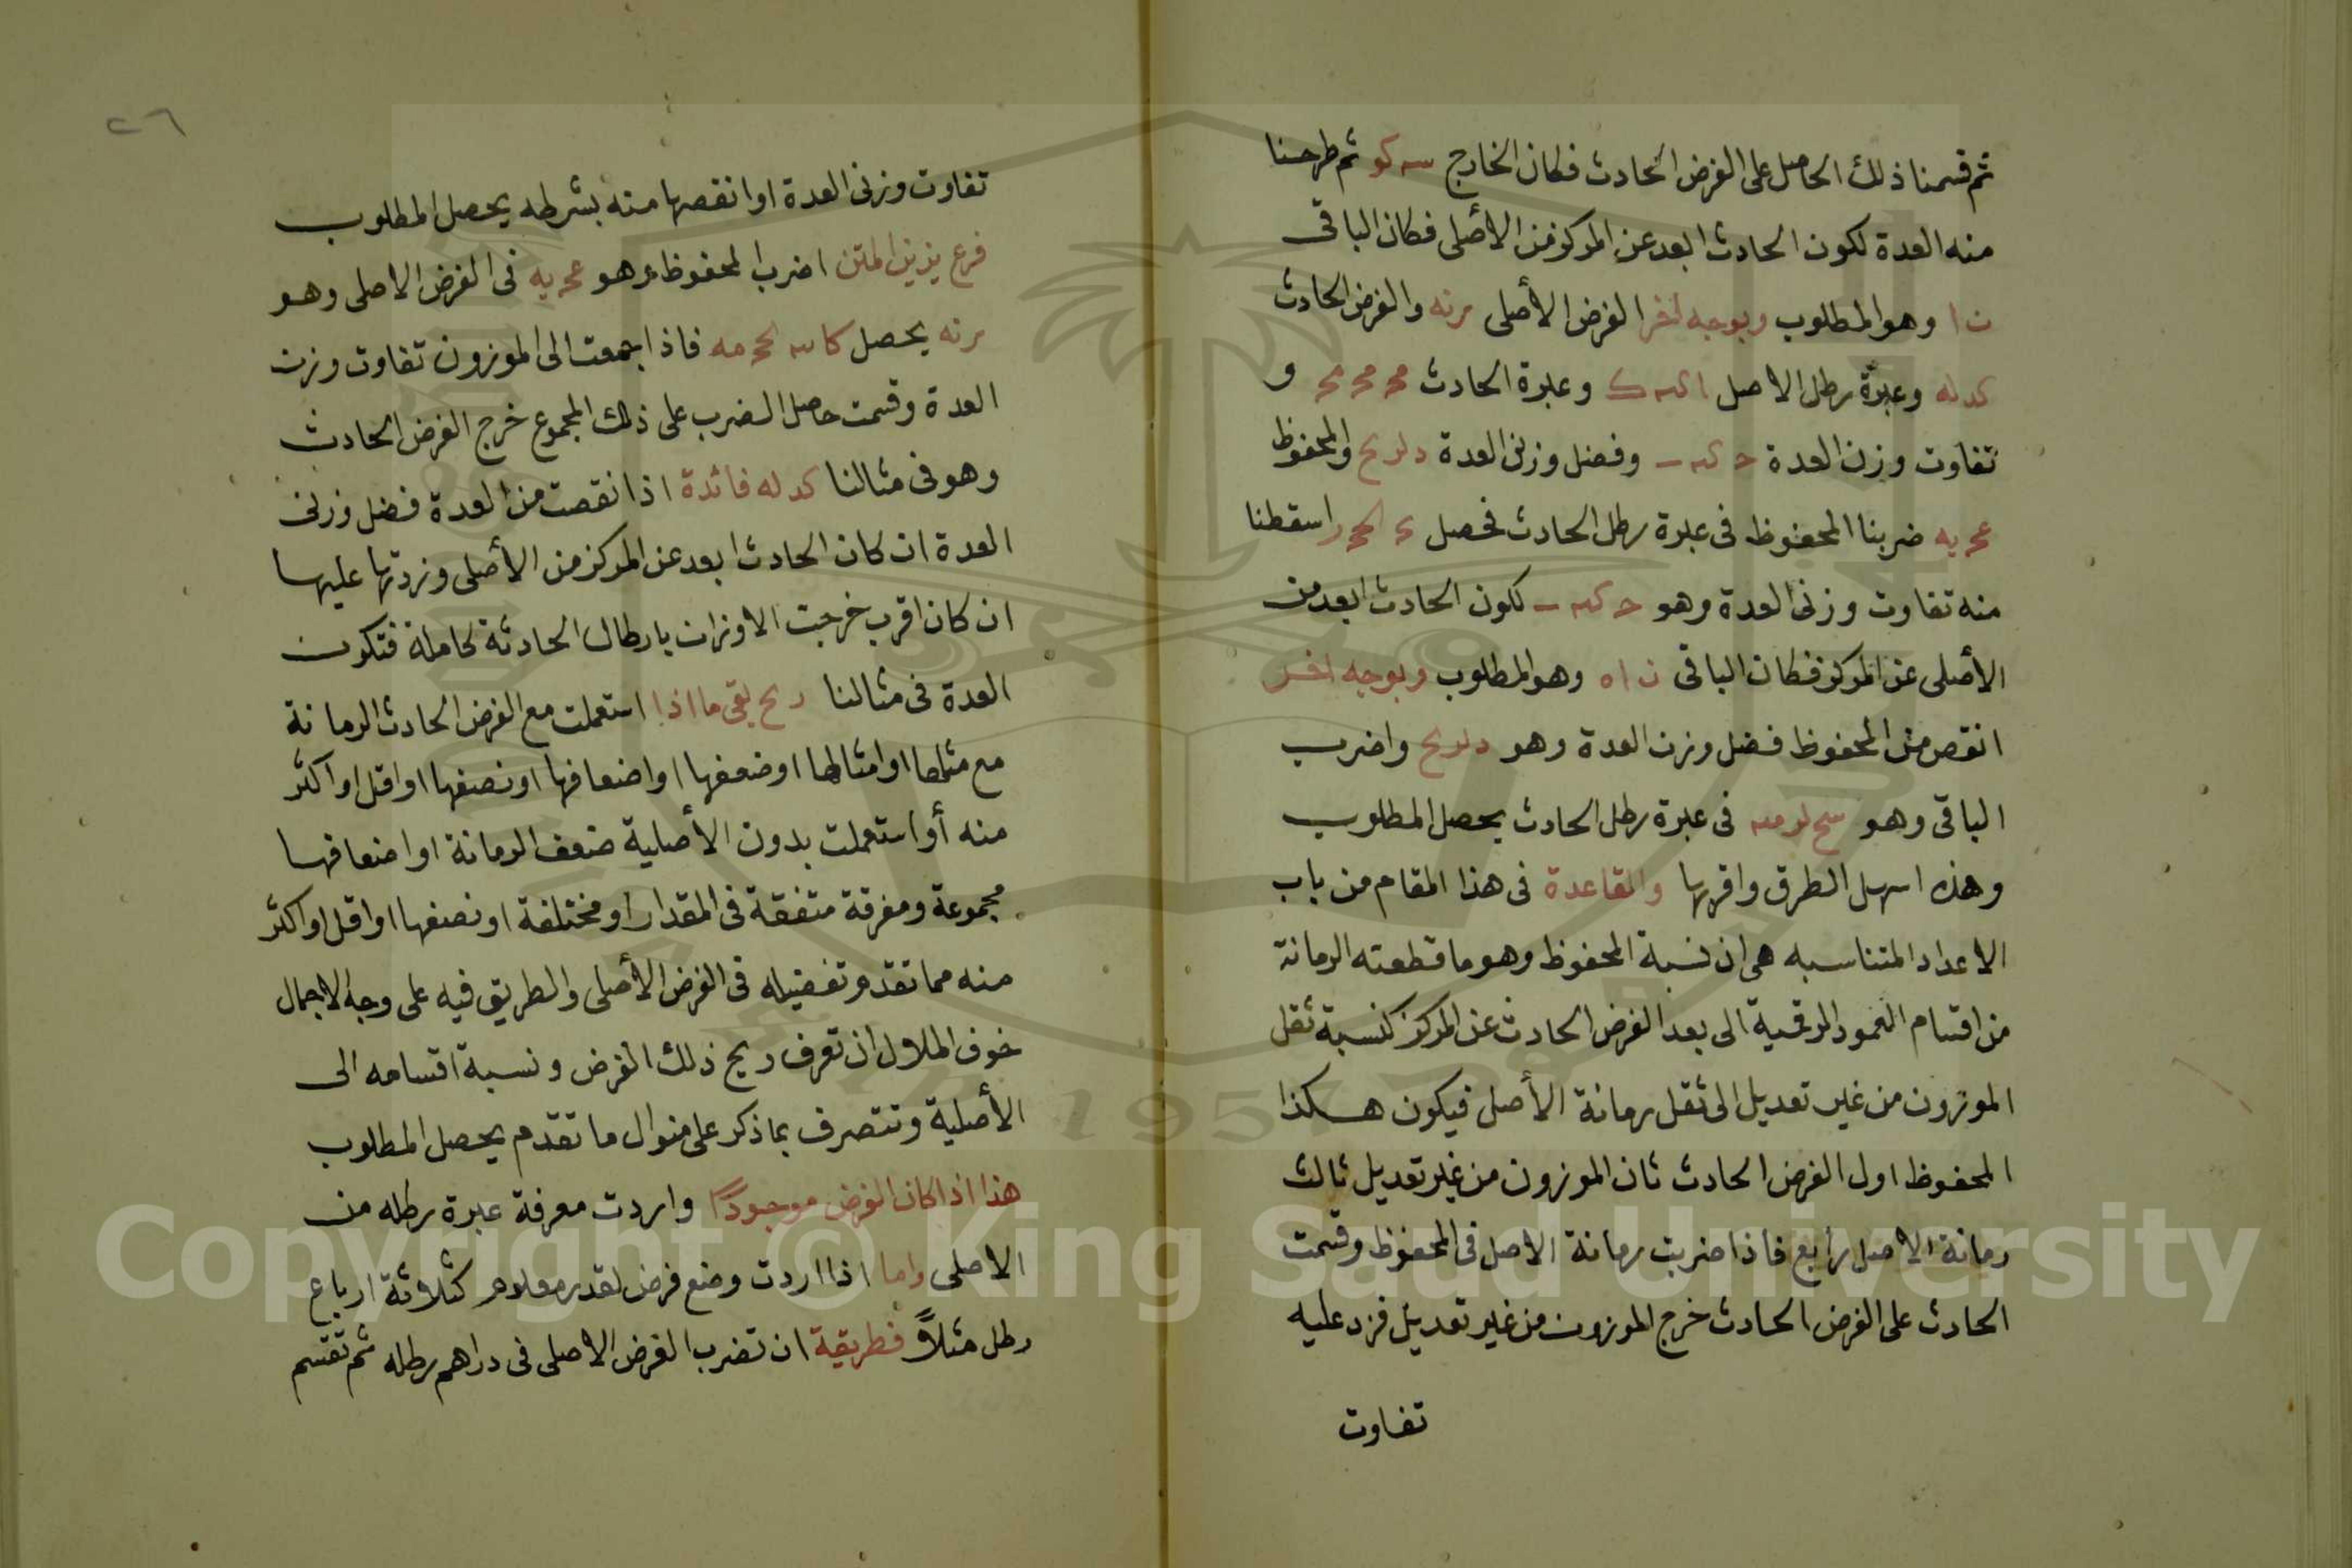 ثم قسمنا ذلك الحاصل على الفرض الحادث فكان الخارج سه كو ثم طرحنا
منه العدة لكون الحادث ابعد عن المركز من الأصلى فكان الباقى
ن ا وهو المطلوب وبوجه اخر الفرض الأصلى مرنه والفرض الحادث
كد له وعبرة رطل الاصل وعبرة الحادث و
تفاوت وزن العدة وفضل وزنى العدة والمحفوظ
ضربنا المحفوظ فى عبرة رطل الحادث فحصل اسقطنا
منه تفاوت وزنى العدة وهو لكون الحادث ابعد من
الأصلى عن المركز فكان الباقى ن اه وهو المطلوب وبوجه اخر
انقص من المحفوظ فضل وزن العدة وهو واضرب
الباقى وهو فى عبرة رطل الحادث يحصل المطلوب
وهذه اسهل الطرق واقربها والقاعدة فى هذا المقام من باب
الاعداد المتناسبه هى ان نسبة المحفوظ وهو ما قطعته الرمانة
من اقسام العمود الرقمية الى بعد الفرض الحادث عن المركز كنسبة ثقل
الموزون من غير تعديل الى ثقل رمانة الأصل فيكون هكذا
المحفوظ اول الفرض الحادث ثان الموزون من غير تعديل ثالث
رمانة الاصل رابع فاذا ضربت رمانة الاصل فى المحفوظ وقسمت
الحادث على الفرض الحادث خرج الموزون من غير تعديل فزد عليه
تفاوت
٢٦
تفاوت وزنى العدة او انقصها منه بشرطه يحصل المطلوب
فرع يزين المتن اضرب المحفوظ وهو فى الفرض الاصلى وهو
مرنه يحصل فاذا جمعت الى الموزون تفاوت وزن
العدة وقسمت حاصل الضرب على ذلك المجموع خرج الفرض الحادث
وهو فى مثالنا كد له فائدة اذا نقصت من العدة فضل وزنى
العدة ان كان الحادث ابعد عن المركز من الأصلى وزدتها عليها
ان كان اقرب خرجت الاوزان بارطال الحادثة كاملة فتكون
العدة فى مثالنا بقى ما اذا استعملت مع الفرض الحادث الرمانة
مع مثلها او امثالها او ضعفها او اضعافها او نصفها او اقل او اكثر
منه أو استعملت بدون الأصلية ضعف الرمانة او اضعافها
مجموعة ومفرقة متفقة فى المقدار او مختلفة او نصفها او اقل او اكثر
منه مما تقدم تفصيله فى الفرض الأصلى والطريق فيه على وجه الاجمال
خوف الملال ان تعرف ريح ذلك الفرض ونسبة اقسامه الى
الأصلية وتتصرف بما ذكر على منوال ما تقدم يحصل المطلوب
هذا اذا كان الفرض موجوداً واردت معرفة عبرة رطله من
الاصلى واما اذا اردت وضع فرض لقدر معلوم كثلاثة ارباع
رطل مثلاً فطريقة ان تضرب الفرض الاصلى فى دراهم رطله ثم تقسم
Copyright © King Saud University
1957